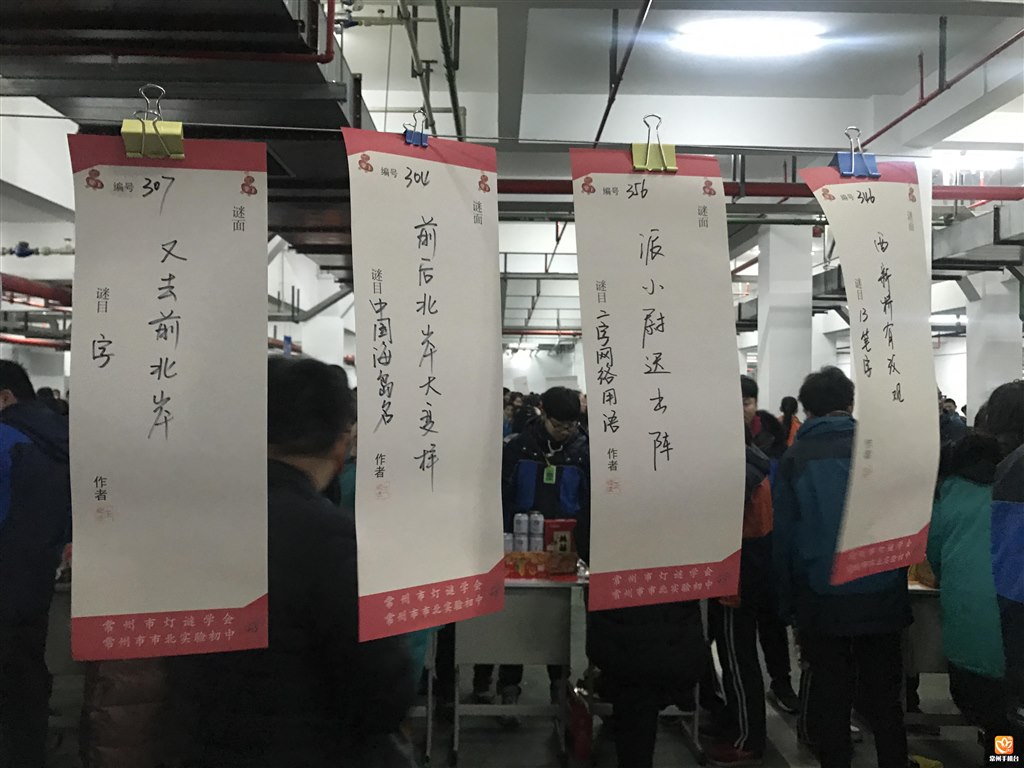 编号 307
谜面
又去前北岸
谜目 字
作者
常州市灯谜学会
常州市市北实验初中
编号 304
谜面
前后北岸大变样
谜目 中国海岛名
作者
常州市灯谜学会
常州市市北实验初中
编号 356
谜面
派小尉迟出阵
谜目 二字网络用语
作者
常州市灯谜学会
常州市市北实验初中
编号 346
谜面
西新桥有发现
谜目 13笔字
常州手机台